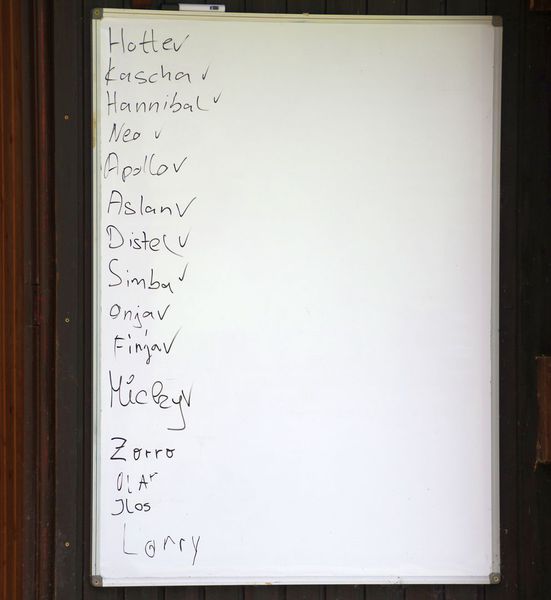 Hotte✓
Kascha ✓
Hannibal ✓
Neo ✓
Apollo✓
Aslan✓
Distel ✓
Simba ✓
Onja✓
Finja✓
Micky✓
Zorro
Olar
Jlos
Larry